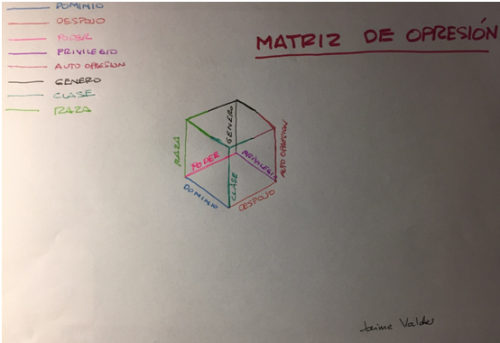 DOMINIO
DESPOJO
PODER
PRIVILEGIO
AUTO OPRESION
GENERO
CLASE
RAZA
MATRIZ DE OPRESIÓN
GENERO
RAZA
PODER
PRIVILEGIO
AUTO OPRESION
CLASE
DOMINIO
DESPOJO
Jaime Valdes